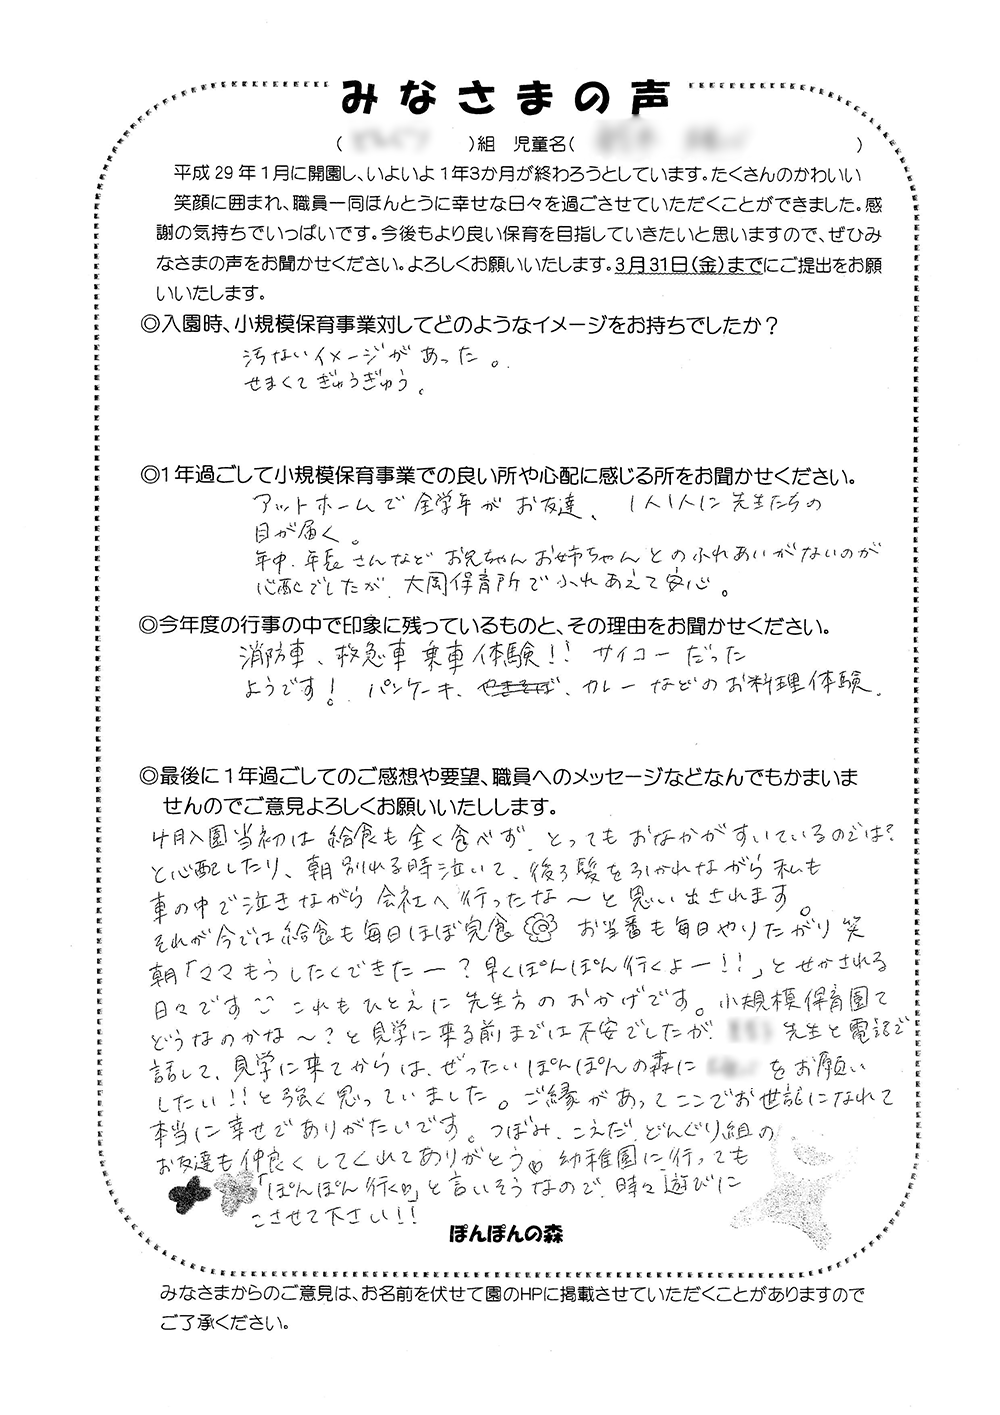 みなさまの声
(　)組　児童名(　)
平成29年1月に開園し、いよいよ1年3か月が終わろうとしています。たくさんのかわいい
笑顔に囲まれ、職員一同ほんとうに幸せな日々を過ごさせていただくことができました。感
謝の気持ちでいっぱいです。今後もより良い保育を目指していきたいと思いますので、ぜひみ
なさまの声をお聞かせください。よろしくお願いいたします。3月31日(金)までにご提出をお願
いいたします。
◎入園時、小規模保育事業対してどのようなイメージをお持ちでしたか?
汚ないイメージがあった。
せまくてぎゅうぎゅう。
◎1年過ごして小規模保育事業での良い所や心配に感じる所をお聞かせください。
アットホームで全学年がお友達、1人1人に先生たちの
目が届く。
年中、年長さんなどお兄ちゃんお姉ちゃんとのふれあいがないのが
心配でしたが、大岡保育所でふれあえて安心。
◎今年度の行事の中で印象に残っているものと、その理由をお聞かせください。
消防車、救急車乗車体験!! サイコーだった
ようです! パンケーキ、やきそば、カレーなどのお料理体験。
◎最後に1年過ごしてのご感想や要望、職員へのメッセージなどなんでもかまいま
せんのでご意見よろしくお願いいたしします。
4月入園当初は給食も全く食べず、とってもおなかがすいているのでは?
と心配したり、朝別れる時泣いて、後ろ髪を引かれながら私も
車の中で泣きながら会社へ行ったな〜と思い出されます。
それが今では給食も毎日ほぼ完食 お当番も毎日やりたがり笑
朝「ママもうしたくできたー?早くぽんぽん行くよー!!」とせかされる
日々です これもひとえに先生方のおかげです。小規模保育園て
どうなのかな〜?と見学に来る前までは不安でしたが、先生と電話で
話して、見学に来てからは、ぜったいぽんぽんの森に をお願い
したい!!と強く思っていました。ご縁があってここでお世話になれて
本当に幸せでありがたいです。つぼみ、こえだ、どんぐり組の
お友達も仲良くしてくれてありがとう♡ 幼稚園に行っても
「ぽんぽん行く♡」と言いそうなので、時々遊びに
こさせて下さい!!
ぽんぽんの森
みなさまからのご意見は、お名前を伏せて園のHPに掲載させていただくことがありますので
ご了承ください。